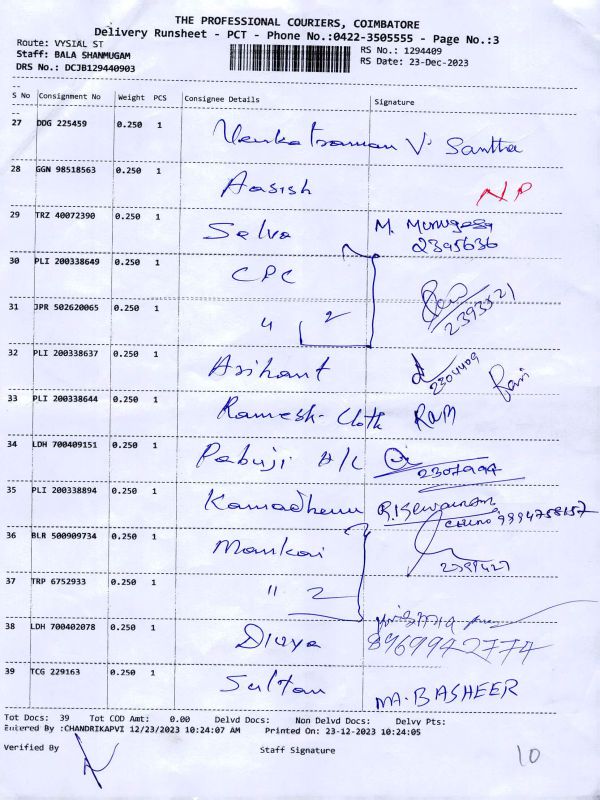 THE PROFESSIONAL COURIERS, COIMBATORE
Delivery Runsheet - PCT - Phone No.:0422-3505555 - Page No.:3
Route: VYSIAL ST
Staff: BALA SHANMUGAM
DRS No.: DCJB129440903
RS No.: 1294409
RS Date: 23-Dec-2023
S No Consignment No Weight PCS Consignee Details Signature
27 DDG 225459 0.250 1 Venkatraman V Santha
28 GGN 98518563 0.250 1 Aasish NP
29 TRZ 40072390 0.250 1 Selva M. Murugesa
2395636
30 PLI 200338649 0.250 1 CPC
31 JPR 502620065 0.250 1 " 2 2393521
32 PLI 200338637 0.250 1 Arihant 2304409 Ravi
33 PLI 200338644 0.250 1 Ramesh Cloth RAM
34 LDH 700409151 0.250 1 Pabuji H/L
35 PLI 200338894 0.250 1 Kamadhenu
9994758157
36 BLR 500909734 0.250 1 Mankai
37 TRP 6752933 0.250 1 " 2
38 LDH 700402078 0.250 1 Divya 8969942774
39 TCG 229163 0.250 1 Sultan MA. BASHEER
Tot Docs: 39 Tot COD Amt: 0.00 Delvd Docs: Non Delvd Docs: Delvy Pts:
Entered By :CHANDRIKAPVI 12/23/2023 10:24:07 AM Printed On: 23-12-2023 10:24:05
Verified By Staff Signature
10